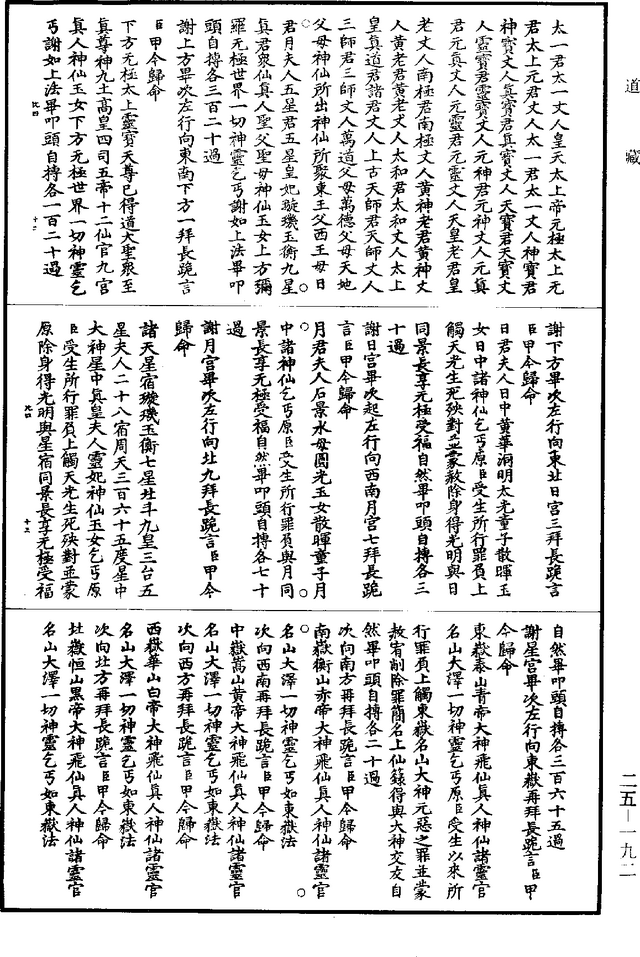 道藏
太一君太一丈人皇天太上帝元極太上元
君太上元君丈人太一君太一丈人神寶君
神寶丈人真寶君真寶丈人天寶君天寶丈
人靈寶君靈寶丈人元神君元神丈人元真
君元真丈人元靈君元靈丈人天皇老君皇
老丈人南極君南極丈人黃神老君黃神丈
人黃老君黃老丈人太和君太和丈人太上
皇真道君諸君丈人上古天師君天師丈人
三師君三師丈人萬道父母萬德父母天地
父母神仙所出神仙所聚東王父西王母日
君月夫人五星君五星皇妃璇璣玉衡九星
真君衆仙真人聖父聖母神仙玉女上方彌
羅元極世界一切神靈乞丐謝如上法畢叩
頭自搏各三百二十過
謝上方畢次左行向東南下方一拜長跪言
臣甲今歸命
下方元極太上靈寶天尊已得道大聖衆至
真尊神九土高皇四司五帝十二仙官九宮
真人神仙玉女下方元極世界一切神靈乞
丐謝如上法畢叩頭自搏各一百二十過
謝下方畢次左行向東北日宮三拜長跪言
臣甲今歸命
日君夫人日中黃華洞明太光童子散暉玉
女日中諸神仙乞丐原臣受生所行罪負上
觸天光生死殃對並蒙赦除身得光明與日
同景長享元極受福自然畢叩頭自搏各三
十過
謝日宮畢次起左行向西南月宮七拜長跪
言臣甲今歸命
月君夫人石景水母圓光玉女散暉童子月
中諸神仙乞丐原臣受生所行罪負與月同
景長享元極受福自然畢叩頭自搏各七十
過
謝月宮畢次左行向北九拜長跪言臣甲今
歸命
諸天星宿璇璣玉衡七星北斗九皇三台五
星夫人二十八宿周天三百六十五度星中
大神星中真皇夫人靈妃神仙玉女乞丐原
臣受生所行罪負上觸天光生死殃對並蒙
原除身得光明與星宿同景長享元極受福
自然畢叩頭自搏各三百六十五過
謝星宮畢次左行向東嶽再拜長跪言臣甲
今歸命
東嶽泰山青帝大神飛仙真人神仙諸靈官
名山大澤一切神靈乞丐原臣受生以來所
行罪負上觸東嶽名山大神元惡之罪並蒙
赦宥削除罪簡名上仙籙得與大神交友自
然畢叩頭自搏各二十過
次向南方再拜長跪言臣甲今歸命
南嶽衡山赤帝大神飛仙真人神仙諸靈官
名山大澤一切神靈乞丐如東嶽法
次向西南再拜長跪言臣甲今歸命
中嶽嵩山黃帝大神飛仙真人神仙諸靈官
名山大澤一切神靈乞丐如東嶽法
次向西方再拜長跪言臣甲今歸命
西嶽華山白帝大神飛仙真人神仙諸靈官
名山大澤一切神靈乞丐如東嶽法
次向北方再拜長跪言臣甲今歸命
北嶽恒山黑帝大神飛仙真人神仙諸靈官
名山大澤一切神靈乞丐如東嶽法
二五—一九二